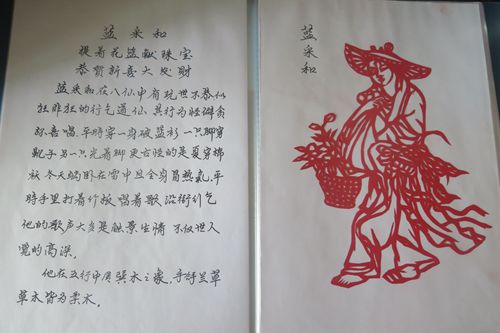 蓝采和
提着花篮献珠宝
恭贺新喜大发财
蓝采和在八仙中有玩世不恭似
狂非狂的行气道仙 其行为怪僻贪
杯喜唱 平時穿一身破蓝衫 一只脚穿
靴子另一只光着脚 更古怪的是夏穿棉
袄 冬天躺卧在雪中且全身冒热氣 平
時手里打着竹板 唱着歌 沿街行气
他的歌声大多是触景生情 不仅世人
覚的高深
他在五行中属巽木之象
草木皆为柔木
蓝采和